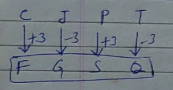 C J P T
+3 -3 +3 -3
F G S Q